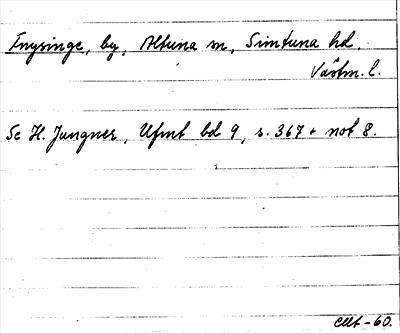 Frysinge, by, Altuna sn, Simtuna hd,
Västm. l.
Se H. Jungner, Ufmt bd 9, s. 367 + not 8.
-60.